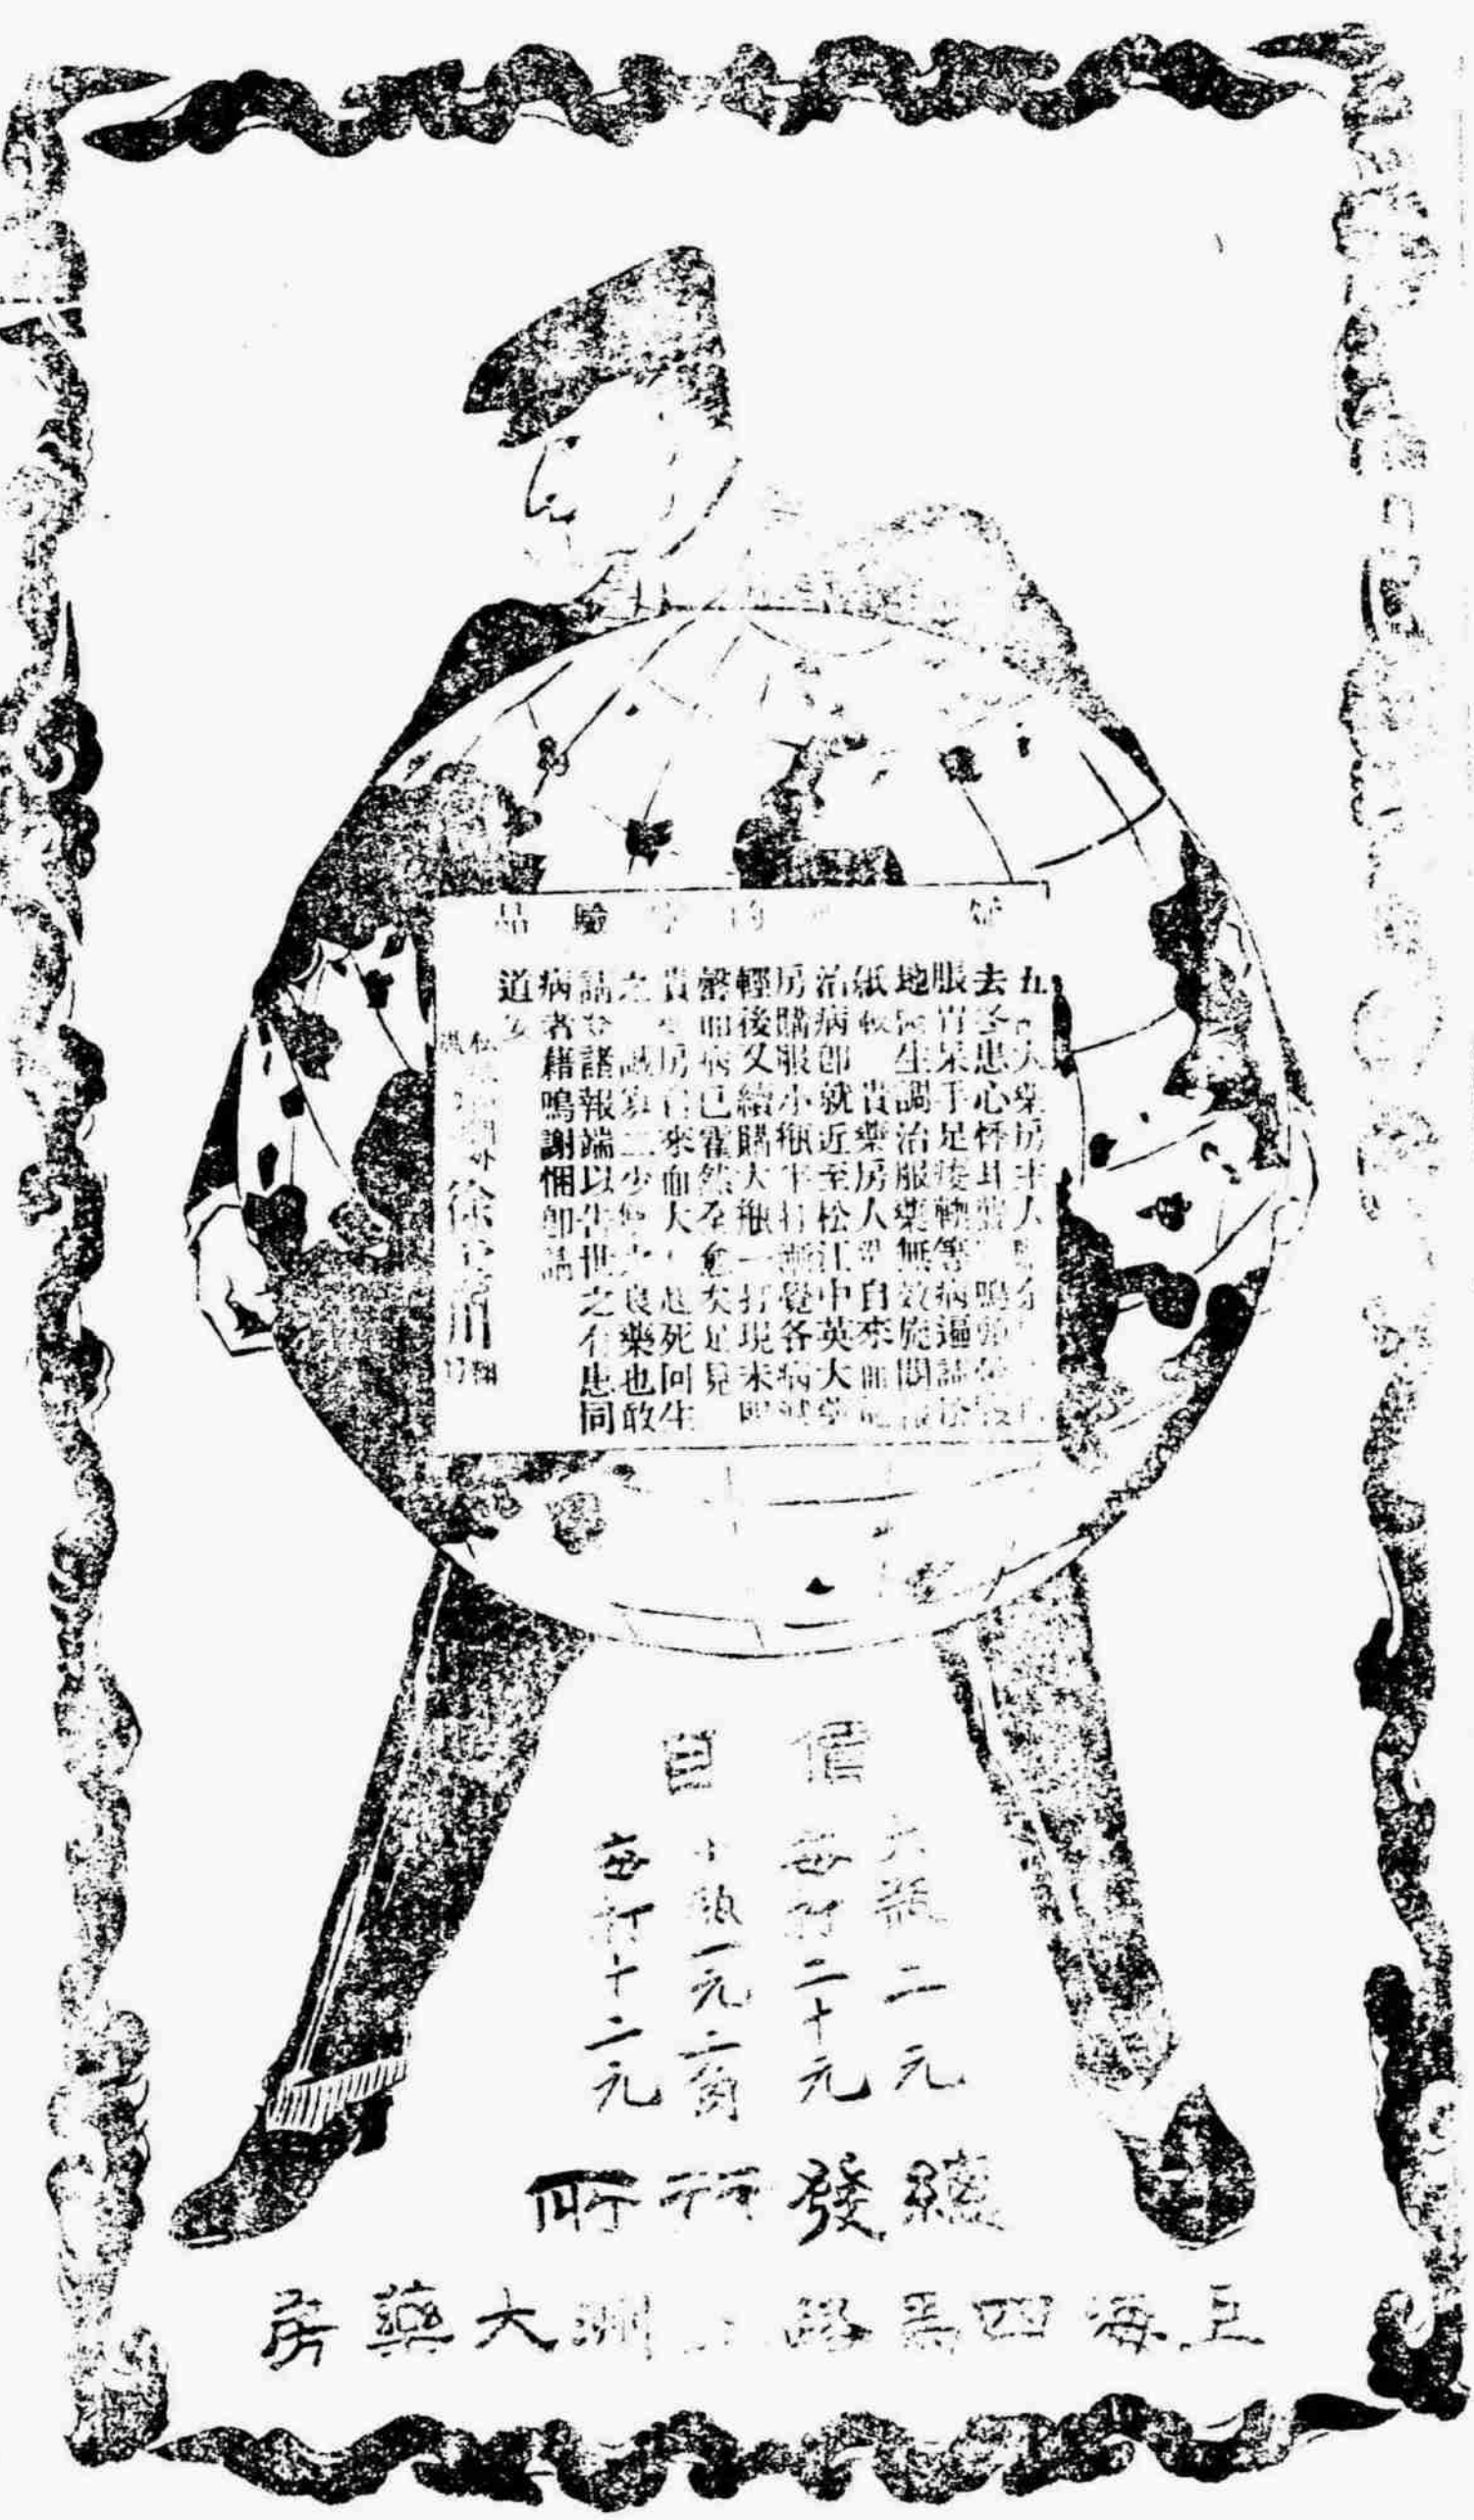 的驗品
五大藥房主人
去冬患心怔耳鳴
眼胃呆手足痿軟等病遍請松
地醫生調治服藥無效旋閱報
紙載 貴藥房人造自來血能
治病即就近至松江中英大藥
房購服小瓶半打漸覺各病減
輕後又續購大瓶一打現未服
罄而病已霍然全愈矣足見
貴藥房自來血大有起死回生
之誠寡二少之良藥也敢
請登諸報端以告世之有患同
病者藉鳴謝悃即請
道安
徐
價目
大瓶二元
每打二十元
小瓶一元二角
每打十二元
總發行所
上海四馬路五洲大藥房